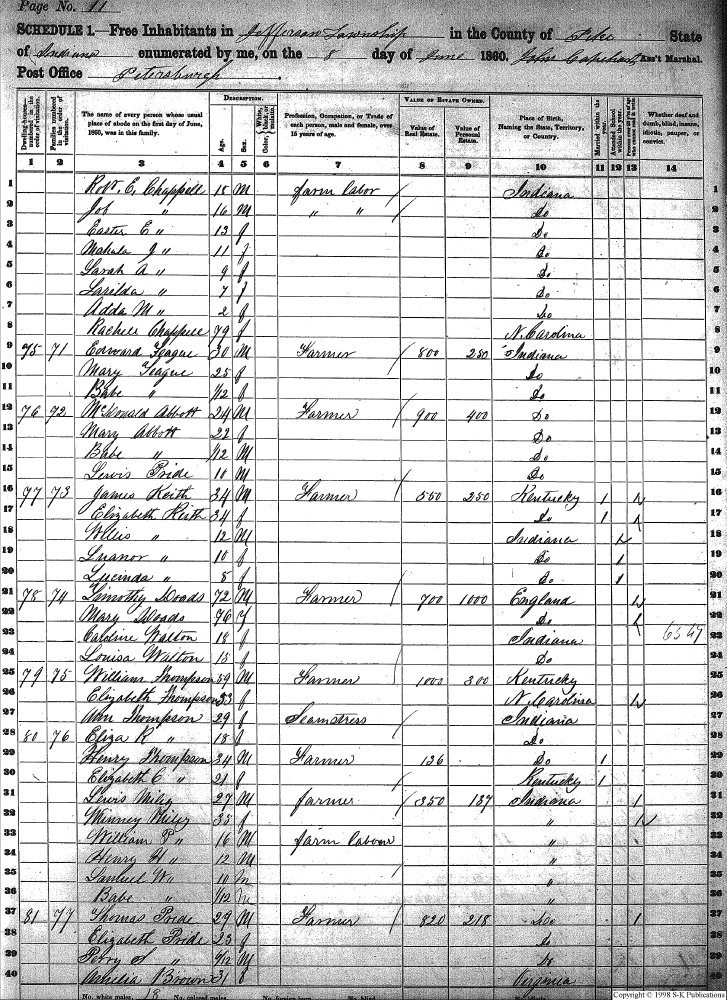 Page No. 11
SCHEDULE 1.—Free Inhabitants in Jefferson Township in the County of Pike State
of Indiana enumerated by me, on the 8 day of June 1860. John Ass't Marshal.
Post Office
Dwelling-houses—numbered in the order of visitation.
Families numbered in the order of visitation.
The name of every person whose usual place of abode on the first day of June, 1860, was in this family.
DESCRIPTION.
Age.
Sex.
Color, White, black, or mulatto.
Profession, Occupation, or Trade of each person, male and female, over 15 years of age.
VALUE OF ESTATE OWNED.
Value of Real Estate.
Value of Personal Estate.
Place of Birth, Naming the State, Territory, or Country.
Married within the year.
Attended School within the year.
Whether deaf and dumb, blind, insane, idiotic, pauper, or convict.
1 2 3 4 5 6 7 8 9 10 11 12 13 14
1 Robt. E. Chappell 18 M farm labor / Indiana
2 Job " 16 M " " / Do
3 Easter E " 13 f Do
4 Mahala J " 11 f Do
5 Sarah A " 9 f Do
6 7 f Do
7 Adda M " 2 f Do
8 Chappell 79 f N. Carolina
9 75 71 Edward Teague 30 M Farmer / 800 250 Indiana
10 Mary Teague 25 f Do
11 Babe " 1/12 f Do
12 76 92 McDonald Abbott 24 M Farmer / 900 400 Do
13 Mary Abbott 22 f Do
14 Babe " 1/12 M Do
15 Lewis Pride 10 M Do
16 77 73 James Keith 34 M Farmer / 550 250 Kentucky 1
17 Elizabeth Keith 34 f Do 1
18 Willis " 12 M Indiana
19 Luanor " 10 f Do 1
20 Lucinda " 8 f Do 1
21 78 74 Timothy 72 M Farmer / 700 1000 England
22 Mary 76 Do
23 Caroline Walton 18 f Indiana
24 Louisa Walton 15 f Do
25 79 75 William Thompson 59 M Farmer / 1000 300 Kentucky
26 Elizabeth Thompson 53 f N. Carolina
27 Ann Thompson 29 f Seamstress / Indiana
28 80 76 Eliza R " 18 f Do
29 Henry Thompson 24 M Farmer 136 Do 1
30 Elizabeth C " 21 f Kentucky 1
31 Lewis 27 M farmer / 350 137 Indiana 1
32 35 f "
33 William P " 16 M farm labour "
34 Henry H " 12 M "
35 Samuel W " 10 M "
36 Babe " 1/12 M "
37 81 77 Thomas Pride 29 M Farmer / 820 218 Do 1
38 Elizabeth Pride 23 f Do
39 Perry S " M Do
40 Amelia Brown 31 f Virginia
No. white males, 18 No. colored males, No. foreign born, No. blind,
Copyright © 1998 S-K Publications